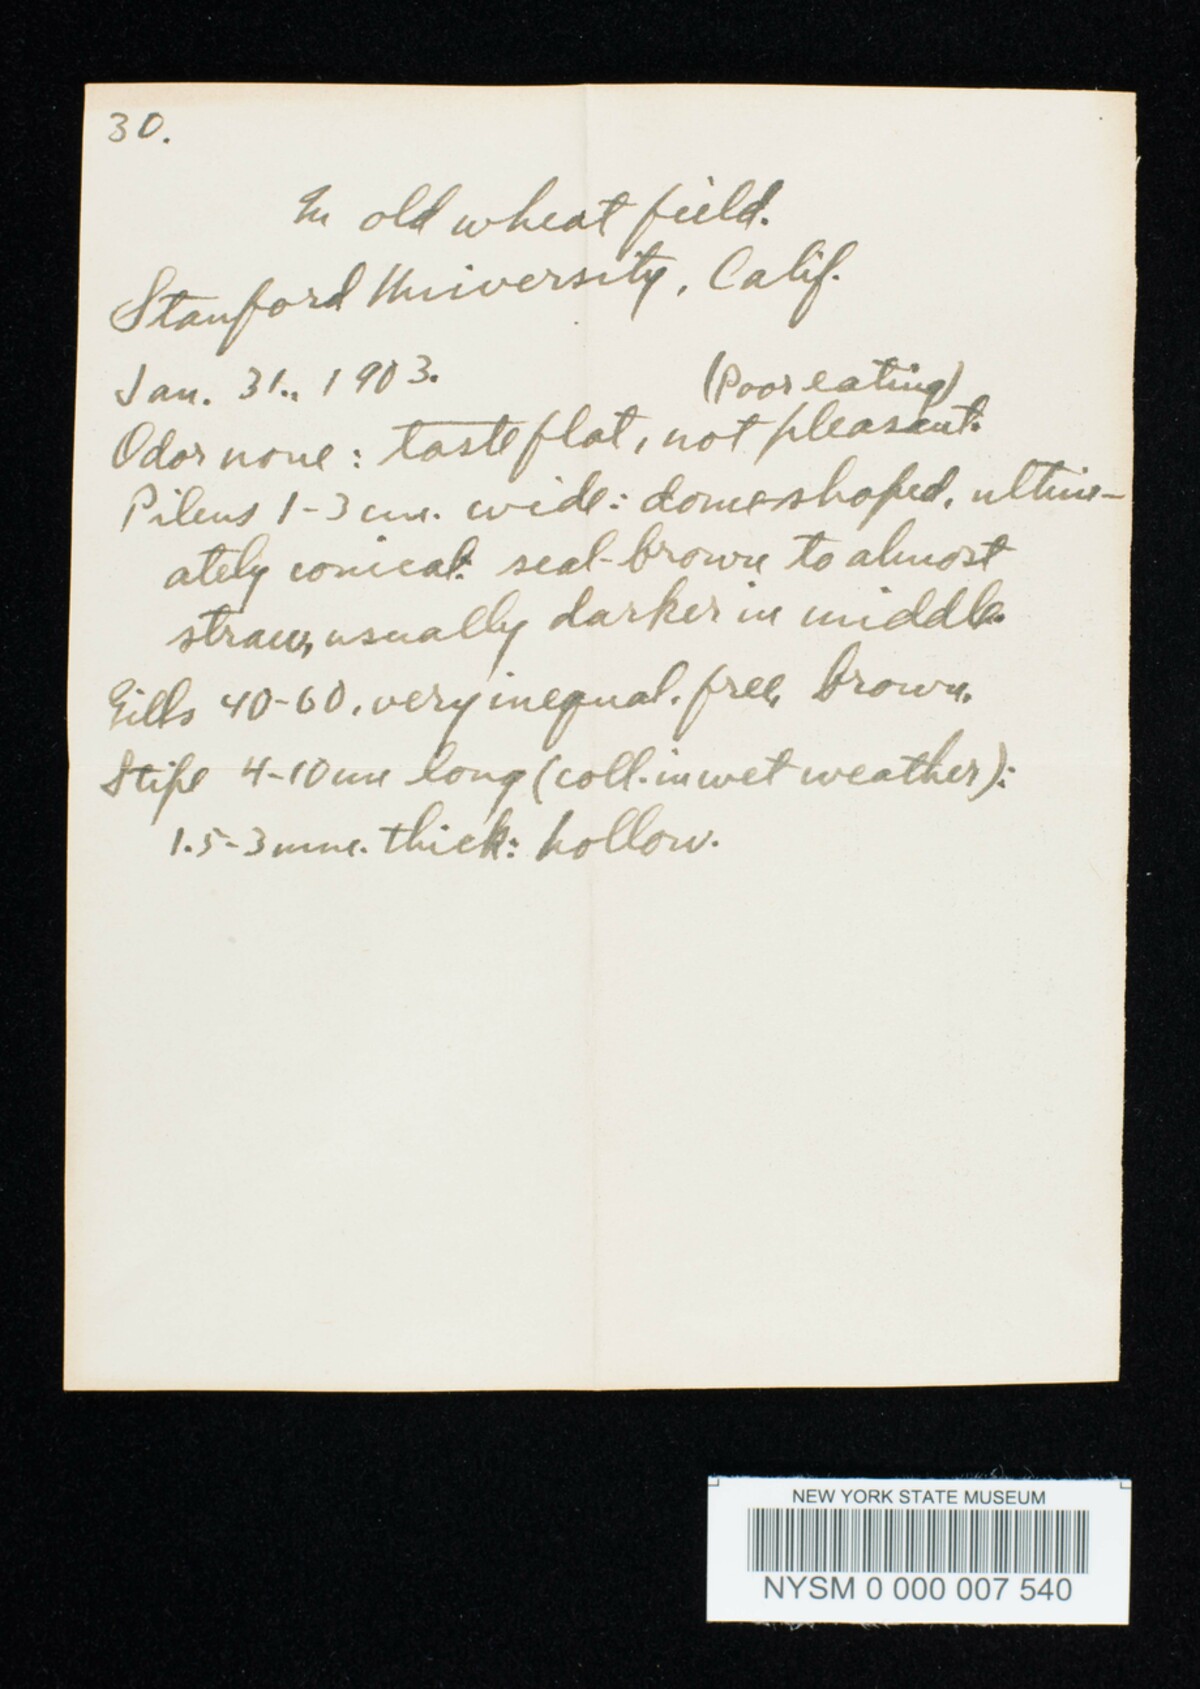 30.
In old wheat field.
Stanford University, Calif.
Jan. 31., 1903.
(Poor eating)
Odor none: taste flat, not pleasant.
Pileus 1-3 cm. wide: dome-shaped, ultim-
ately conical: seal-brown to almost
straw, usually darker in middle.
Gills 40-60, very inequal. free, brown.
Stipe 4-10 cm long (coll. in wet weather):
1.5-3 mm. thick: hollow.
NEW YORK STATE MUSEUM
NYSM 0 000 007 540